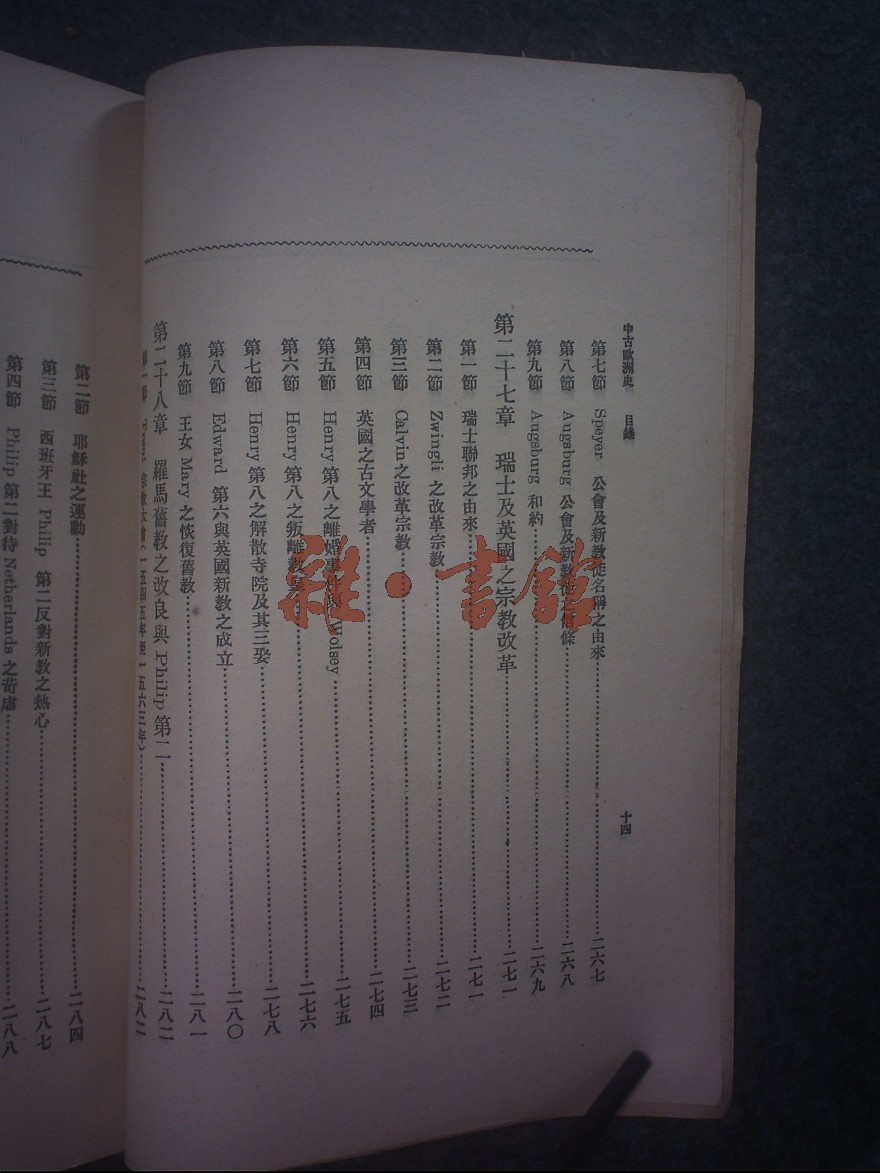 中古歐洲史 目錄 十四
第七節 Speyer 公會及新教徒名稱之由來……二六七
第八節 Augsburg 公會及新教徒之信條……二六八
第九節 Augsburg 和約……二六九
第二十七章 瑞士及英國之宗教改革……二七一
第一節 瑞士聯邦之由來……二七一
第二節 Zwingli 之改革宗教……二七二
第三節 Calvin 之改革宗教……二七三
第四節 英國之古文學者……二七四
第五節 Henry 第八之離婚事 Wolsey……二七五
第六節 Henry 第八之叛離教……二七六
第七節 Henry 第八之解散寺院及其三娶……二七八
第八節 Edward 第六與英國新教之成立……二八〇
第九節 王女 Mary 之恢復舊教……二八一
第二十八章 羅馬舊教之改良與 Philip 第二……二八二
第一節 宗教大會(一五四五年至一五六三年)……二八二
第二節 耶穌社之運動……二八四
第三節 西班牙王 Philip 第二反對新教之熱心……二八七
第四節 Philip 第二對待 Netherlands 之苛虐……二八八
雜·書館